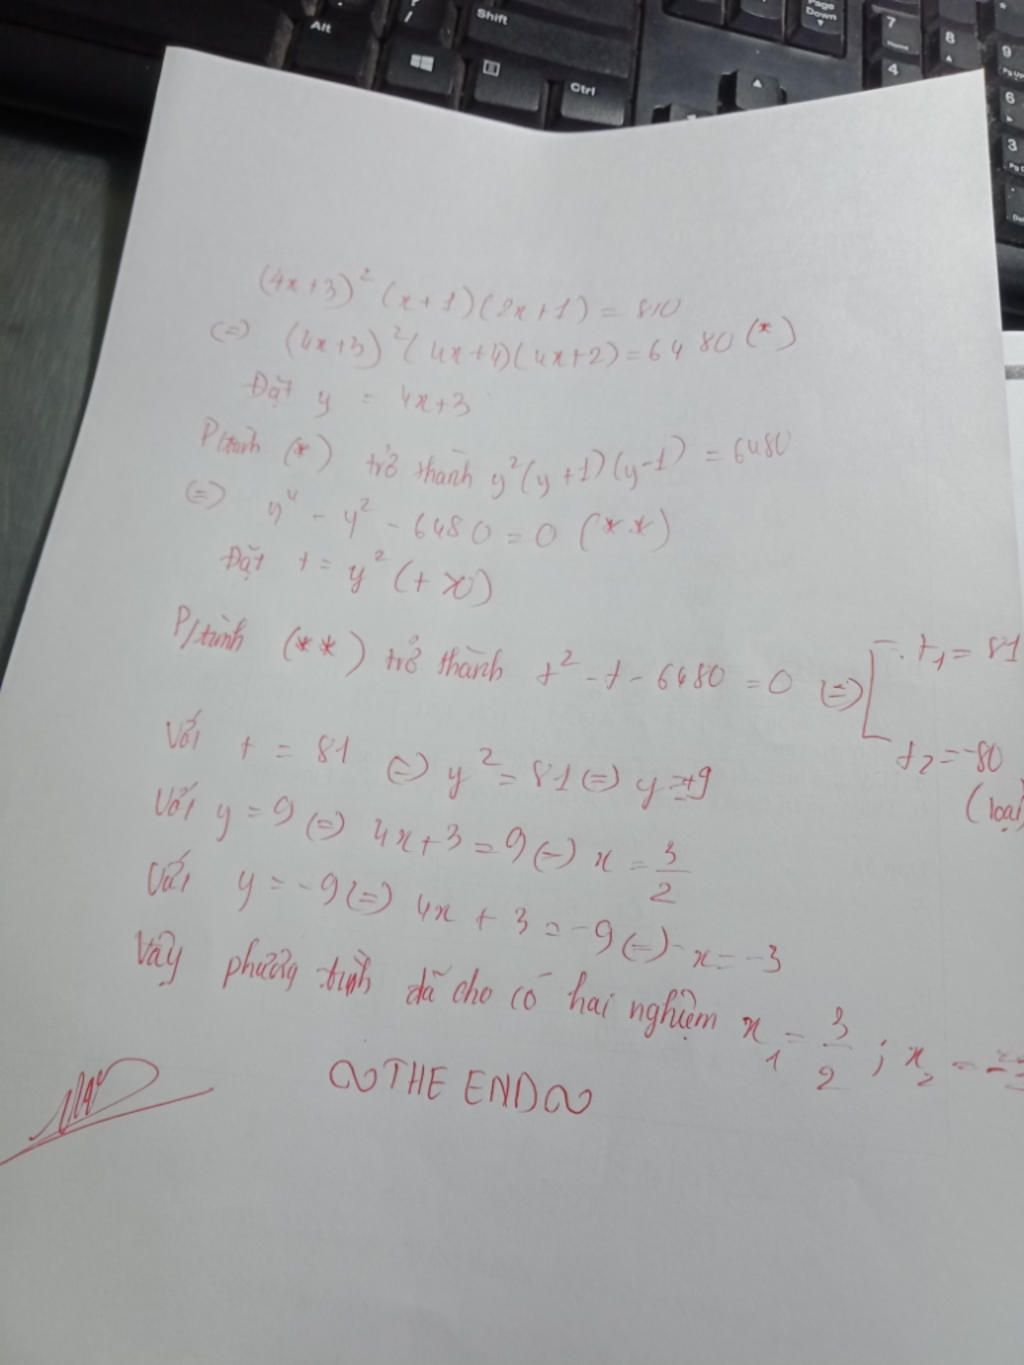 Alt
Shift
Page
Down
Ctrl
7
Home
8
9
4
6
3
(4x+3)² (x+1)(2x+1) = 810
(=) (4x+3)² (4x+4)(4x+2) = 6480 (*)
Đặt y = 4x+3
P/trình (*) trở thành y²(y+1)(y-1) = 6480
(=) y⁴ - y² - 6480 = 0 (**)
Đặt t = y² (t ≥ 0)
P/trình (**) trở thành t² - t - 6480 = 0 (=) [ t₁ = 81
t₂ = -80
(loại
Với t = 81 (=) y² = 81 (=) y = ±9
Với y = 9 (=) 4x+3 = 9 (=) x = 3/2
Với y = -9 (=) 4x + 3 = -9 (=) x = -3
Vậy phương trình đã cho có hai nghiệm x₁ = 3/2 ; x₂ = -3
∾THE END∾